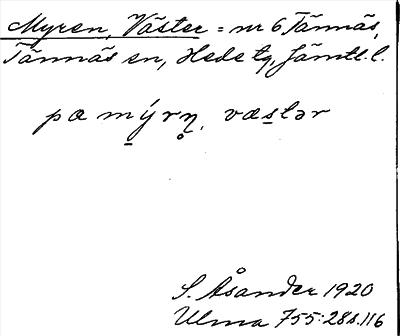 Myren, Väster = nr 6 Tännäs,
Tännäs sn, Hede tg, Jämtl. l.
pæ mýrn̥, væstər
S. Åsander 1920
Ulma 755:28 s. 116